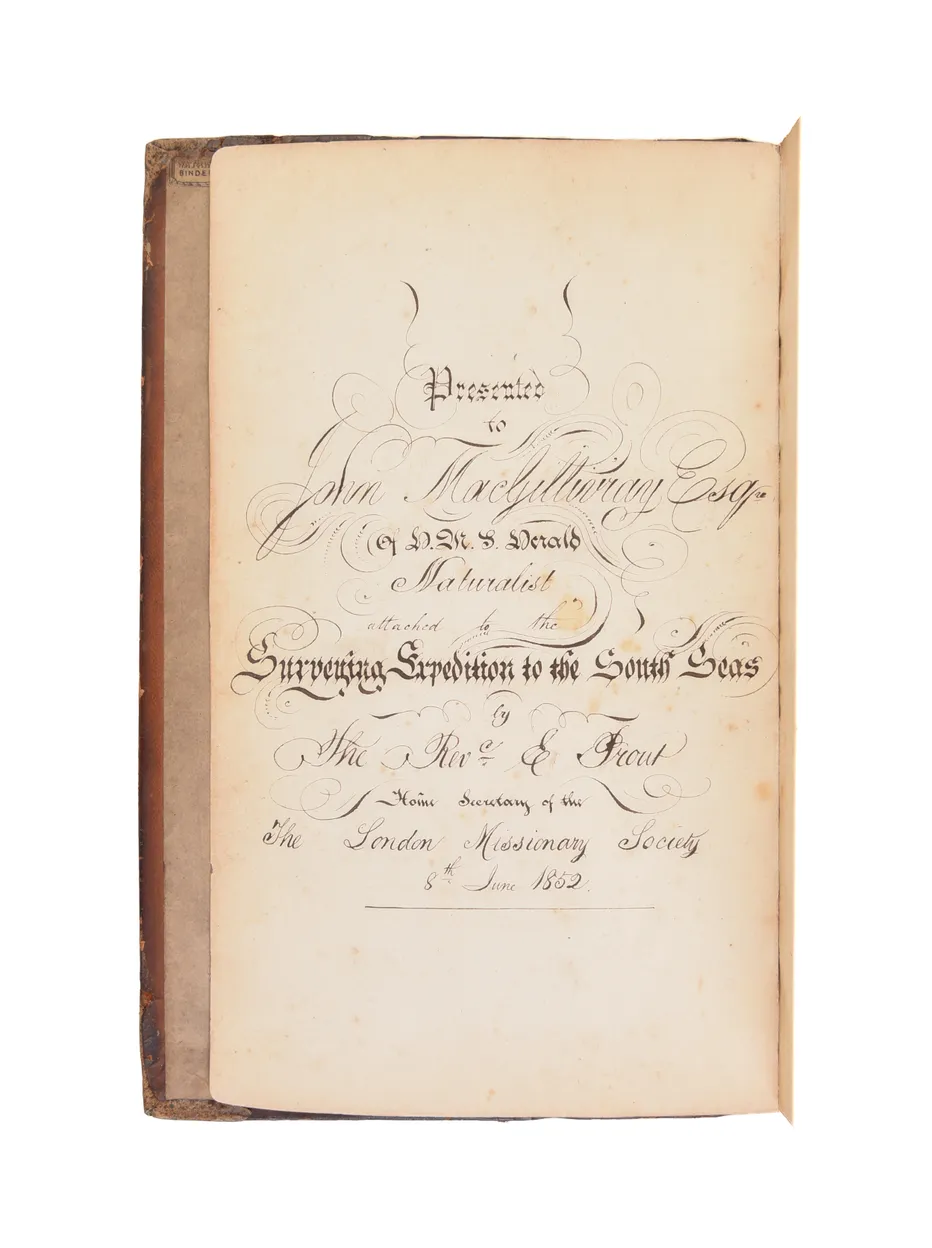 BINDE
Presented
to
John MacGillivray Esqre
Of H. M. S. Herald
Naturalist
attached to the
Surveying Expedition to the South Seas
by
The Revd E Prout
Home Secretary of the
The London Missionary Society
8th June 1852.